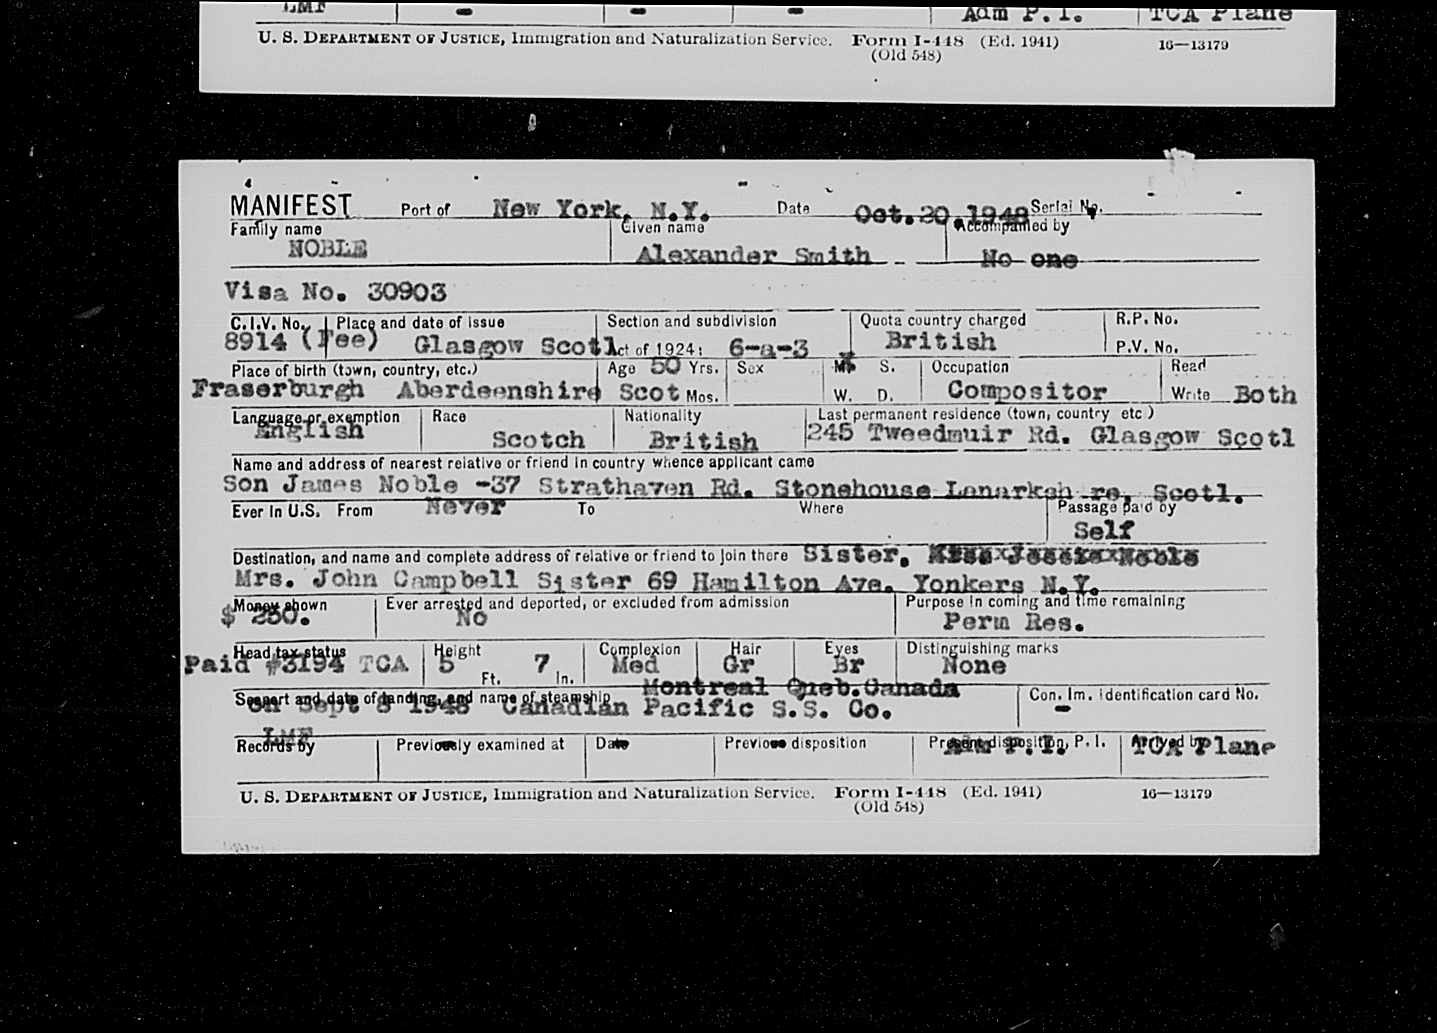 LMF - - - Adm P. I. TCA Plane
U. S. DEPARTMENT OF JUSTICE, Immigration and Naturalization Service. Form I-448 (Ed. 1941) 16—13179
(Old 548)
MANIFEST Port of New York, N.Y. Date Oct.20.1948 Serial No.
Family name Given name Accompanied by
NOBLE Alexander Smith No one
Visa No. 30903
C.I.V. No. Place and date of issue Section and subdivision Quota country charged R.P. No.
8914 (Fee) Glasgow Scotl Act of 1924: 6-a-3 British P.V. No.
Place of birth (town, country, etc.) Age 50 Yrs. Sex M. S. Occupation Read
Fraserburgh Aberdeenshire Scot Mos. W. D. Compositor Write Both
Language or exemption Race Nationality Last permanent residence (town, country etc )
English Scotch British 245 Tweedmuir Rd. Glasgow Scotl
Name and address of nearest relative or friend in country whence applicant came
Son James Noble -37 Strathaven Rd. Stonehouse Lanarksh re, Scotl.
Ever in U.S. From Never To Where Passage paid by
Self
Destination, and name and complete address of relative or friend to join there Sister. Miss Jessie Noble
Mrs. John Campbell Sister 69 Hamilton Ave. Yonkers N.Y.
Money shown Ever arrested and deported, or excluded from admission Purpose in coming and time remaining
$ 250. No Perm Res.
Head tax status Height Complexion Hair Eyes Distinguishing marks
Paid #3194 TCA 5 Ft. 7 In. Med Gr Br None
Seaport and date of landing, and name of steamship Montreal Queb.Canada Con. Im. Identification card No.
on Sept 8 1948 Canadian Pacific S.S. Co. -
LMF
Records by Previously examined at Date Previous disposition Present disposition, P. I. Arrived by
Adm P. I. TCA Plane
U. S. DEPARTMENT OF JUSTICE, Immigration and Naturalization Service. Form I-448 (Ed. 1941) 16—13179
(Old 548)